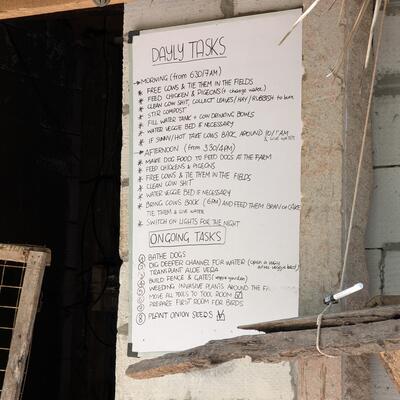 DAYLY TASKS
→ MORNING (from 630/7AM)
* FREE COWS & TIE THEM IN THE FIELDS
* FEED CHICKEN & PIGEONS (+ change water)
* CLEAN COW SHIT, COLLECT LEAVES/HAY/RUBBISH to burn
* STIR COMPOST
* FILL WATER TANK + COW DRINKING BOWLS
* WATER VEGGIE BED IF NECESSARY
* IF SUNNY/HOT TAKE COWS BACK, AROUND 10/11AM
& GIVE WATER
→ AFTERNOON (from 330/4PM)
* MAKE DOG FOOD TO FEED DOGS AT THE FARM
* FEED CHICKENS & PIGEONS
* FREE COWS & TIE THEM IN THE FIELDS
* CLEAN COW SHIT
* WATER BED IF NECESSARY
* BRING COWS BACK (6PM) AND FEED THEM BRAN OR CAKE
TIE THEM & GIVE WATER
* SWITCH ON LIGHTS FOR THE NIGHT
ONGOING TASKS
① BATHE DOGS
② DIG DEEPER CHANNEL FOR WATER (open a well
after veggie bed)
③ TRANSPLANT ALOE VERA
④ BUILD FENCE & GATES (veggie garden)
⑤ WEEDING INVASIVE PLANTS AROUND THE
⑥ MOVE ALL TOOLS TO TOOL ROOM ☑
⑦ PREPARE FIRST ROOM FOR BIRDS
⑧ PLANT ONION SEEDS ☑